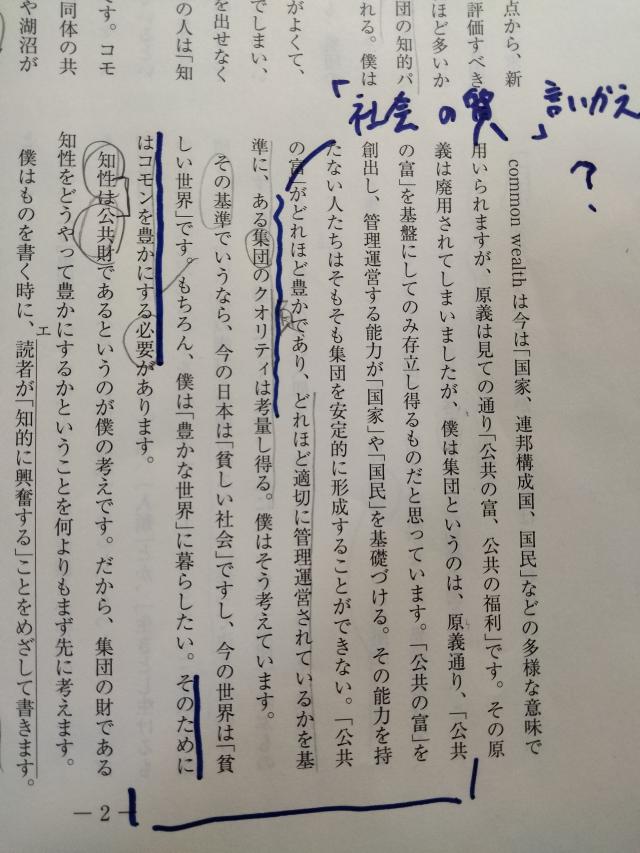 点から、新
評価すべき
ほど多いか
団の知的パ
れる。僕は
がよくて、
でしまい、
を出せなく
の人は「知
です。コモ
同体の共
や湖沼が
「社会の質」言いかえ
?
common wealth は今は「国家、連邦構成国、国民」などの多様な意味で
用いられますが、原義は見ての通り「公共の富、公共の福利」です。その原
義は廃用されてしまいましたが、僕は集団というのは、原義通り、「公共
の富」を基盤にしてのみ存立し得るものだと思っています。「公共の富」を
創出し、管理運営する能力が「国家」や「国民」を基礎づける。その能力を持
たない人たちはそもそも集団を安定的に形成することができない。「公共
の富」がどれほど豊かであり、どれほど適切に管理運営されているかを基
準に、ある集団のクオリティは考量し得る。僕はそう考えています。
その基準でいうなら、今の日本は「貧しい社会」ですし、今の世界は「貧
しい世界」です。もちろん、僕は「豊かな世界」に暮らしたい。そのために
はコモンを豊かにする必要があります。
知性は公共財であるというのが僕の考えです。だから、集団の財である
知性をどうやって豊かにするかということを何よりもまず先に考えます。
エ
僕はものを書く時に、読者が「知的に興奮する」ことをめざして書きます。
— 2 —